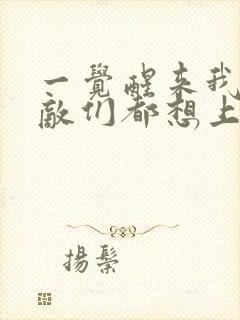 一覺醒来我
敵们都想上
揚鬃